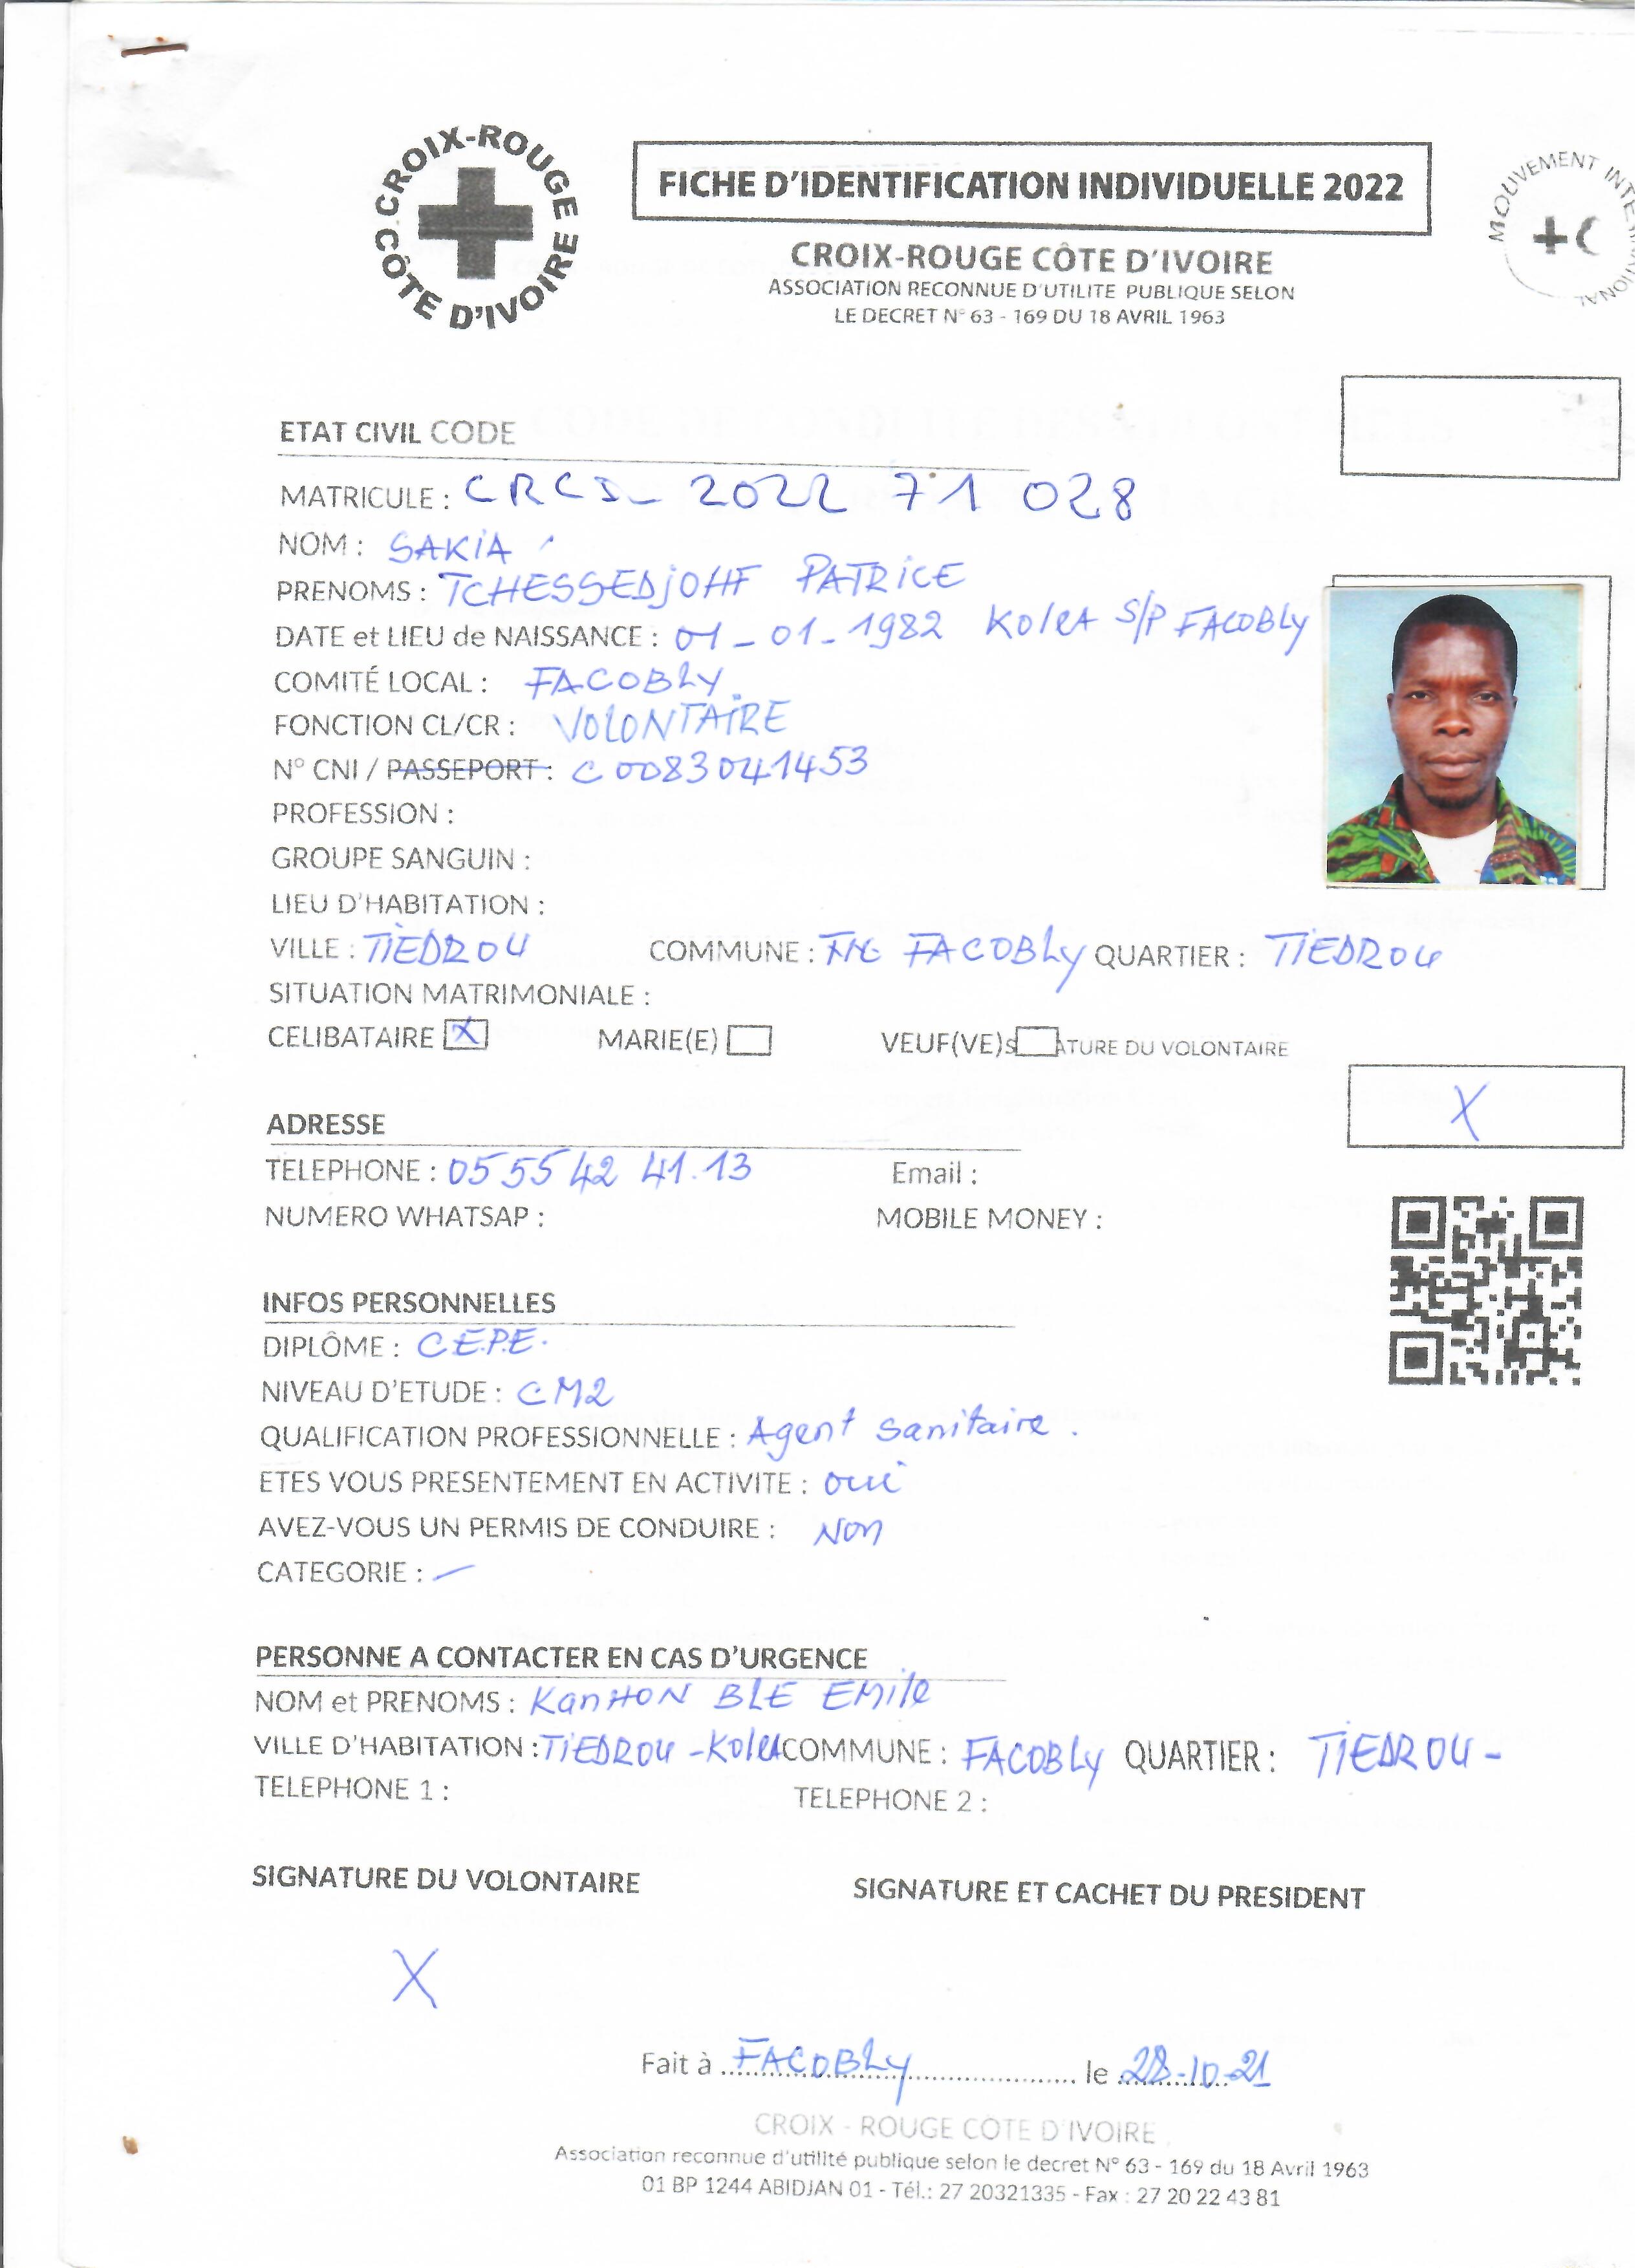 CROIX-ROUGE CÔTE D'IVOIRE
FICHE D'IDENTIFICATION INDIVIDUELLE 2022
MOUVEMENT INTERNATIONAL
CROIX-ROUGE CÔTE D'IVOIRE
ASSOCIATION RECONNUE D'UTILITE PUBLIQUE SELON
LE DECRET N° 63 - 169 DU 18 AVRIL 1963
ETAT CIVIL CODE
MATRICULE : CRCI_ 2022 71 028
NOM : SAKIA
PRENOMS : TCHESSEDjOHF PATRICE
DATE et LIEU de NAISSANCE : 01_01_1982 S/P FACOBLY
COMITÉ LOCAL : FACOBLY
FONCTION CL/CR : VOLONTAIRE
N° CNI / PASSEPORT : C 0083041453
PROFESSION :
GROUPE SANGUIN :
LIEU D'HABITATION :
VILLE : TIEDROU COMMUNE : FACOBLY QUARTIER : TIEDROU
SITUATION MATRIMONIALE :
CELIBATAIRE X MARIE(E) VEUF(VE) S ATURE DU VOLONTAIRE
X
ADRESSE
TELEPHONE : 05 55 42 41.13 Email :
NUMERO WHATSAP : MOBILE MONEY :
INFOS PERSONNELLES
DIPLÔME : C.E.P.E.
NIVEAU D'ETUDE : CM2
QUALIFICATION PROFESSIONNELLE : Agent Sanitaire.
ETES VOUS PRESENTEMENT EN ACTIVITE : oui
AVEZ-VOUS UN PERMIS DE CONDUIRE : Non
CATEGORIE : —
PERSONNE A CONTACTER EN CAS D'URGENCE
NOM et PRENOMS : KanHON BLE EMile
VILLE D'HABITATION : TIEDROU - COMMUNE : FACOBLY QUARTIER : TIEDROU -
TELEPHONE 1 : TELEPHONE 2 :
SIGNATURE DU VOLONTAIRE SIGNATURE ET CACHET DU PRESIDENT
X
Fait à FACOBLY le 28-10-21
CROIX - ROUGE CÔTE D'IVOIRE
Association reconnue d'utilité publique selon le decret N° 63 - 169 du 18 Avril 1963
01 BP 1244 ABIDJAN 01 - Tél.: 27 20321335 - Fax : 27 20 22 43 81